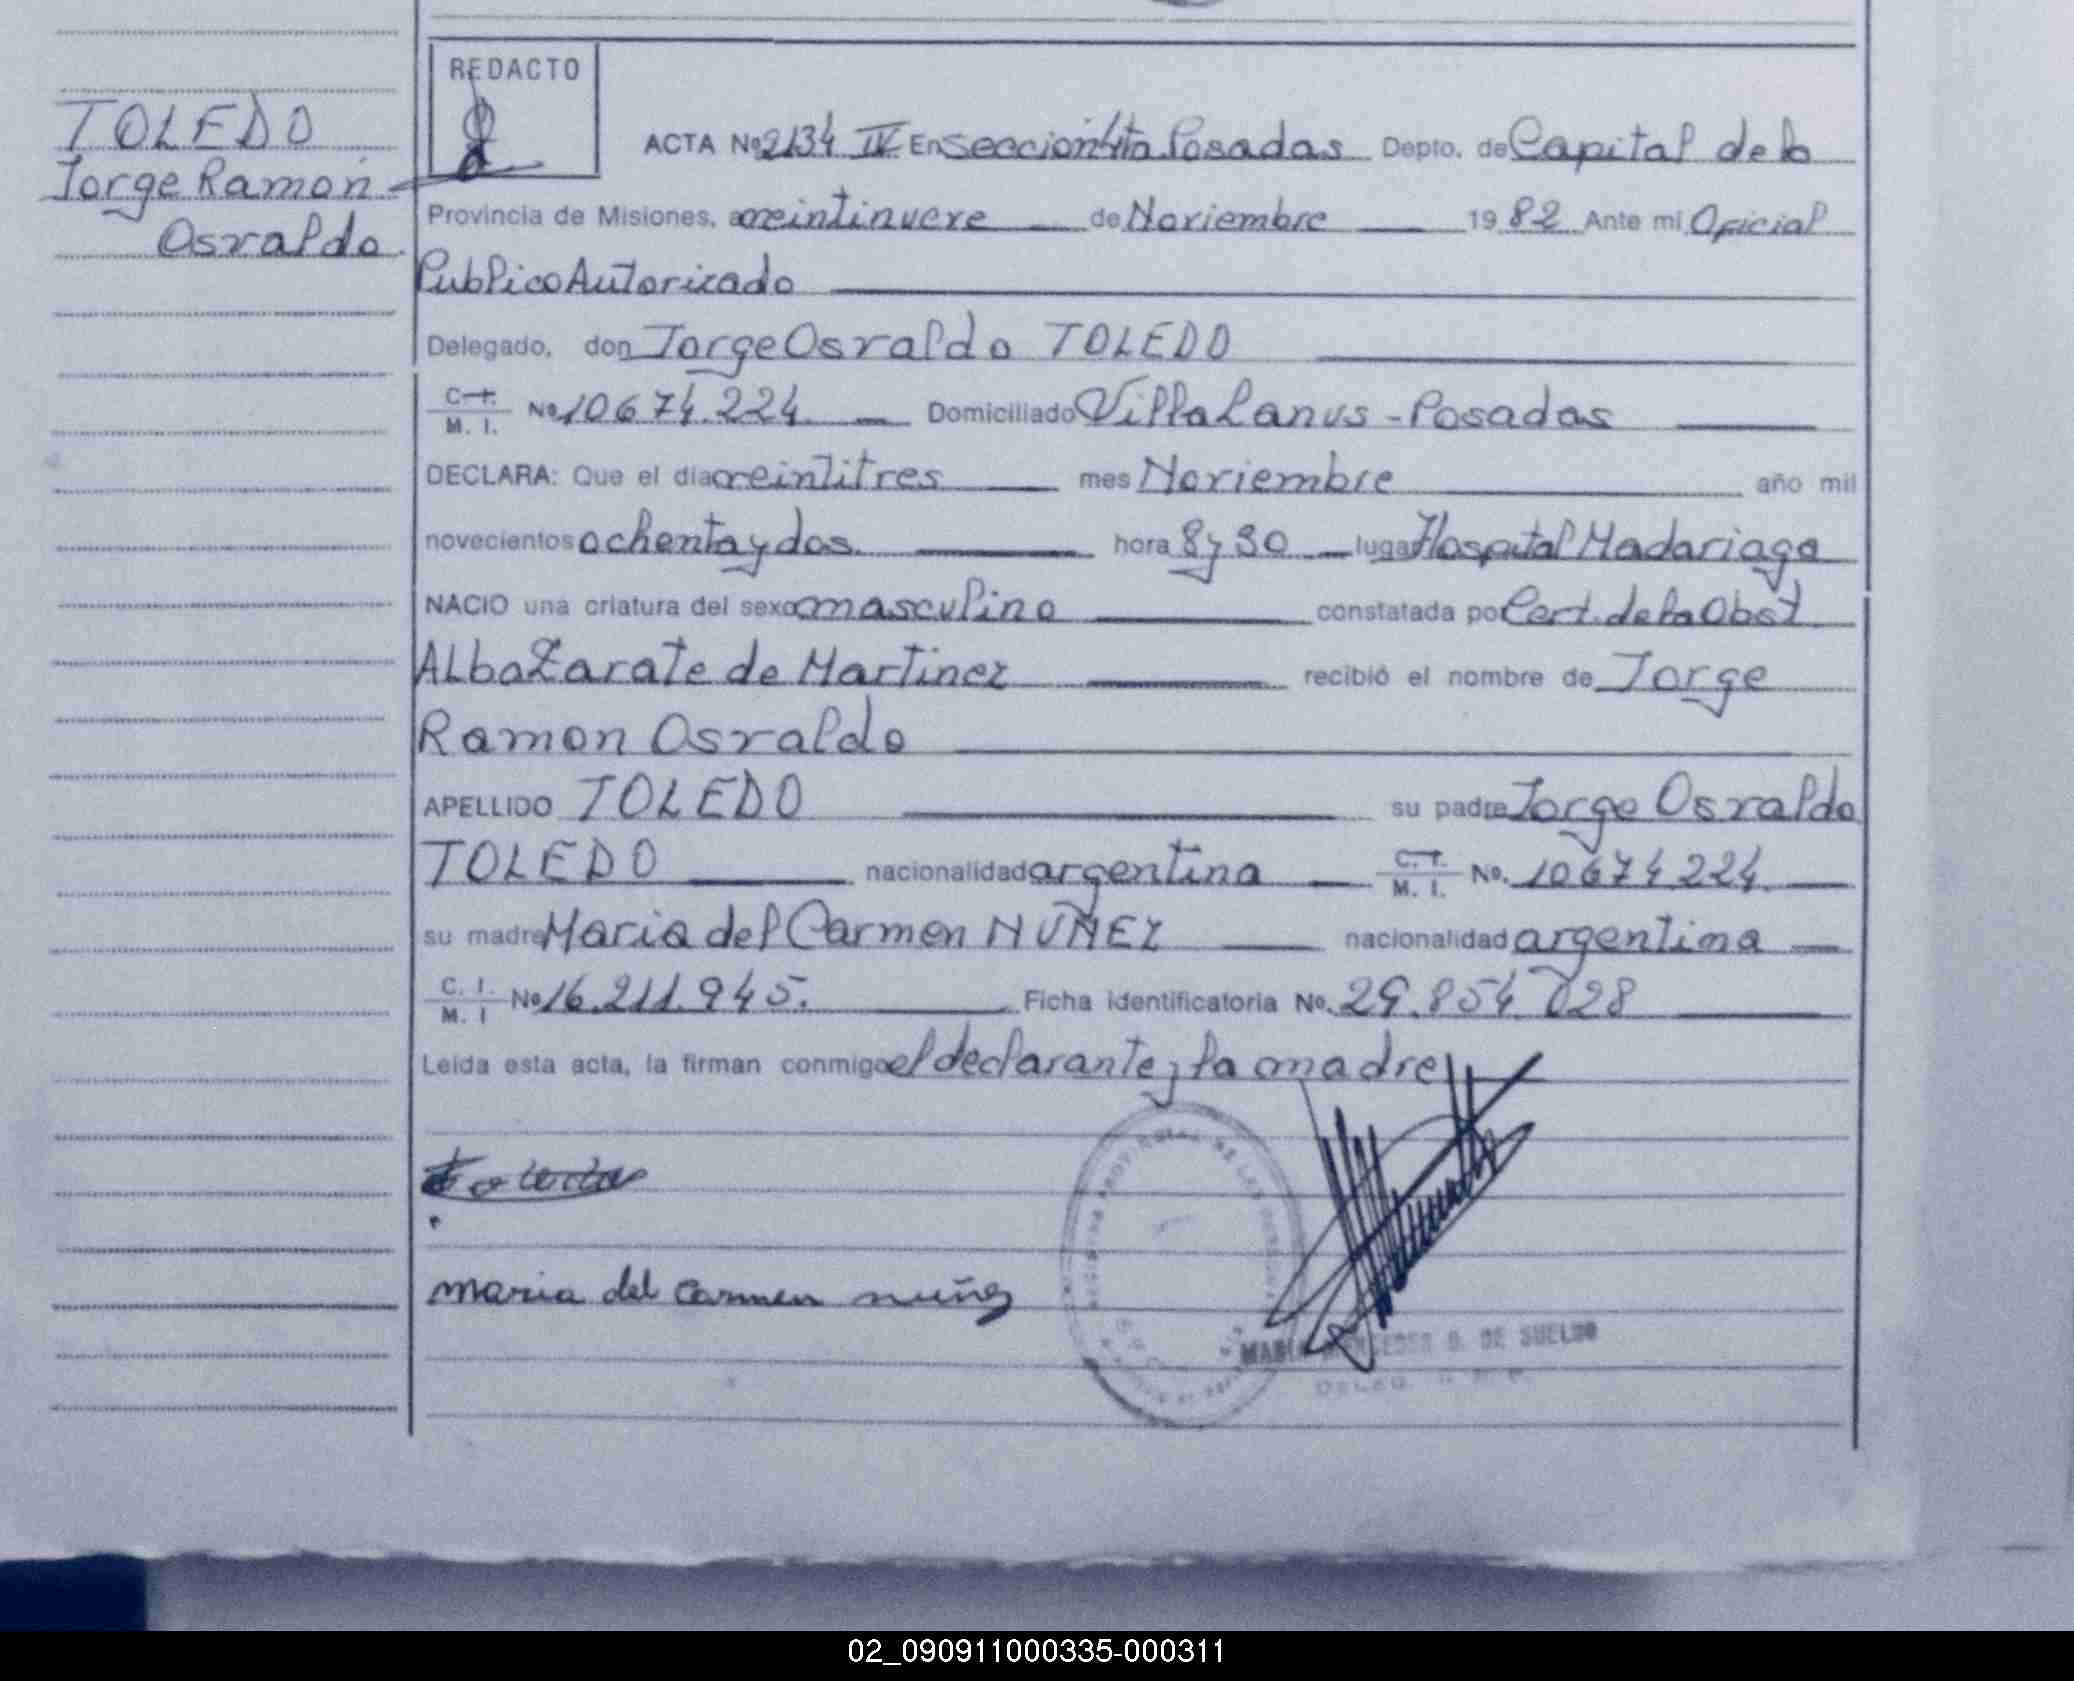 TOLEDO
Jorge Ramon
Osvaldo
REDACTO
ACTA No 2134 IV En Seccion 4ta Posadas Depto. de Capital de la
Provincia de Misiones, a veintinueve de Noviembre 19 82 Ante mi Oficial
Publico Autorizado
Delegado, don Jorge Osvaldo TOLEDO
C. I. M. I. No 10674.224 Domiciliado Villa Lanus - Posadas
DECLARA: Que el dia veintitres mes Noviembre año mil
novecientos ochenta y dos hora 8 y 30 lugar Hospital Madariaga
NACIO una criatura del sexo masculino constatada por Cert. de la Obst
Alba Zarate de Martinez recibió el nombre de Jorge
Ramon Osvaldo
APELLIDO TOLEDO su padre Jorge Osvaldo
TOLEDO nacionalidad argentina C. I. M. I. No. 10674224
su madre Maria del Carmen NUÑEZ nacionalidad argentina
C. I. M. I No 16.211.945. Ficha identificatoria No. 29.854.028
Leida esta acta, la firman conmigo el declarante y la madre
maria del carmen nuñez
DE SUELDO
02_090911000335-000311